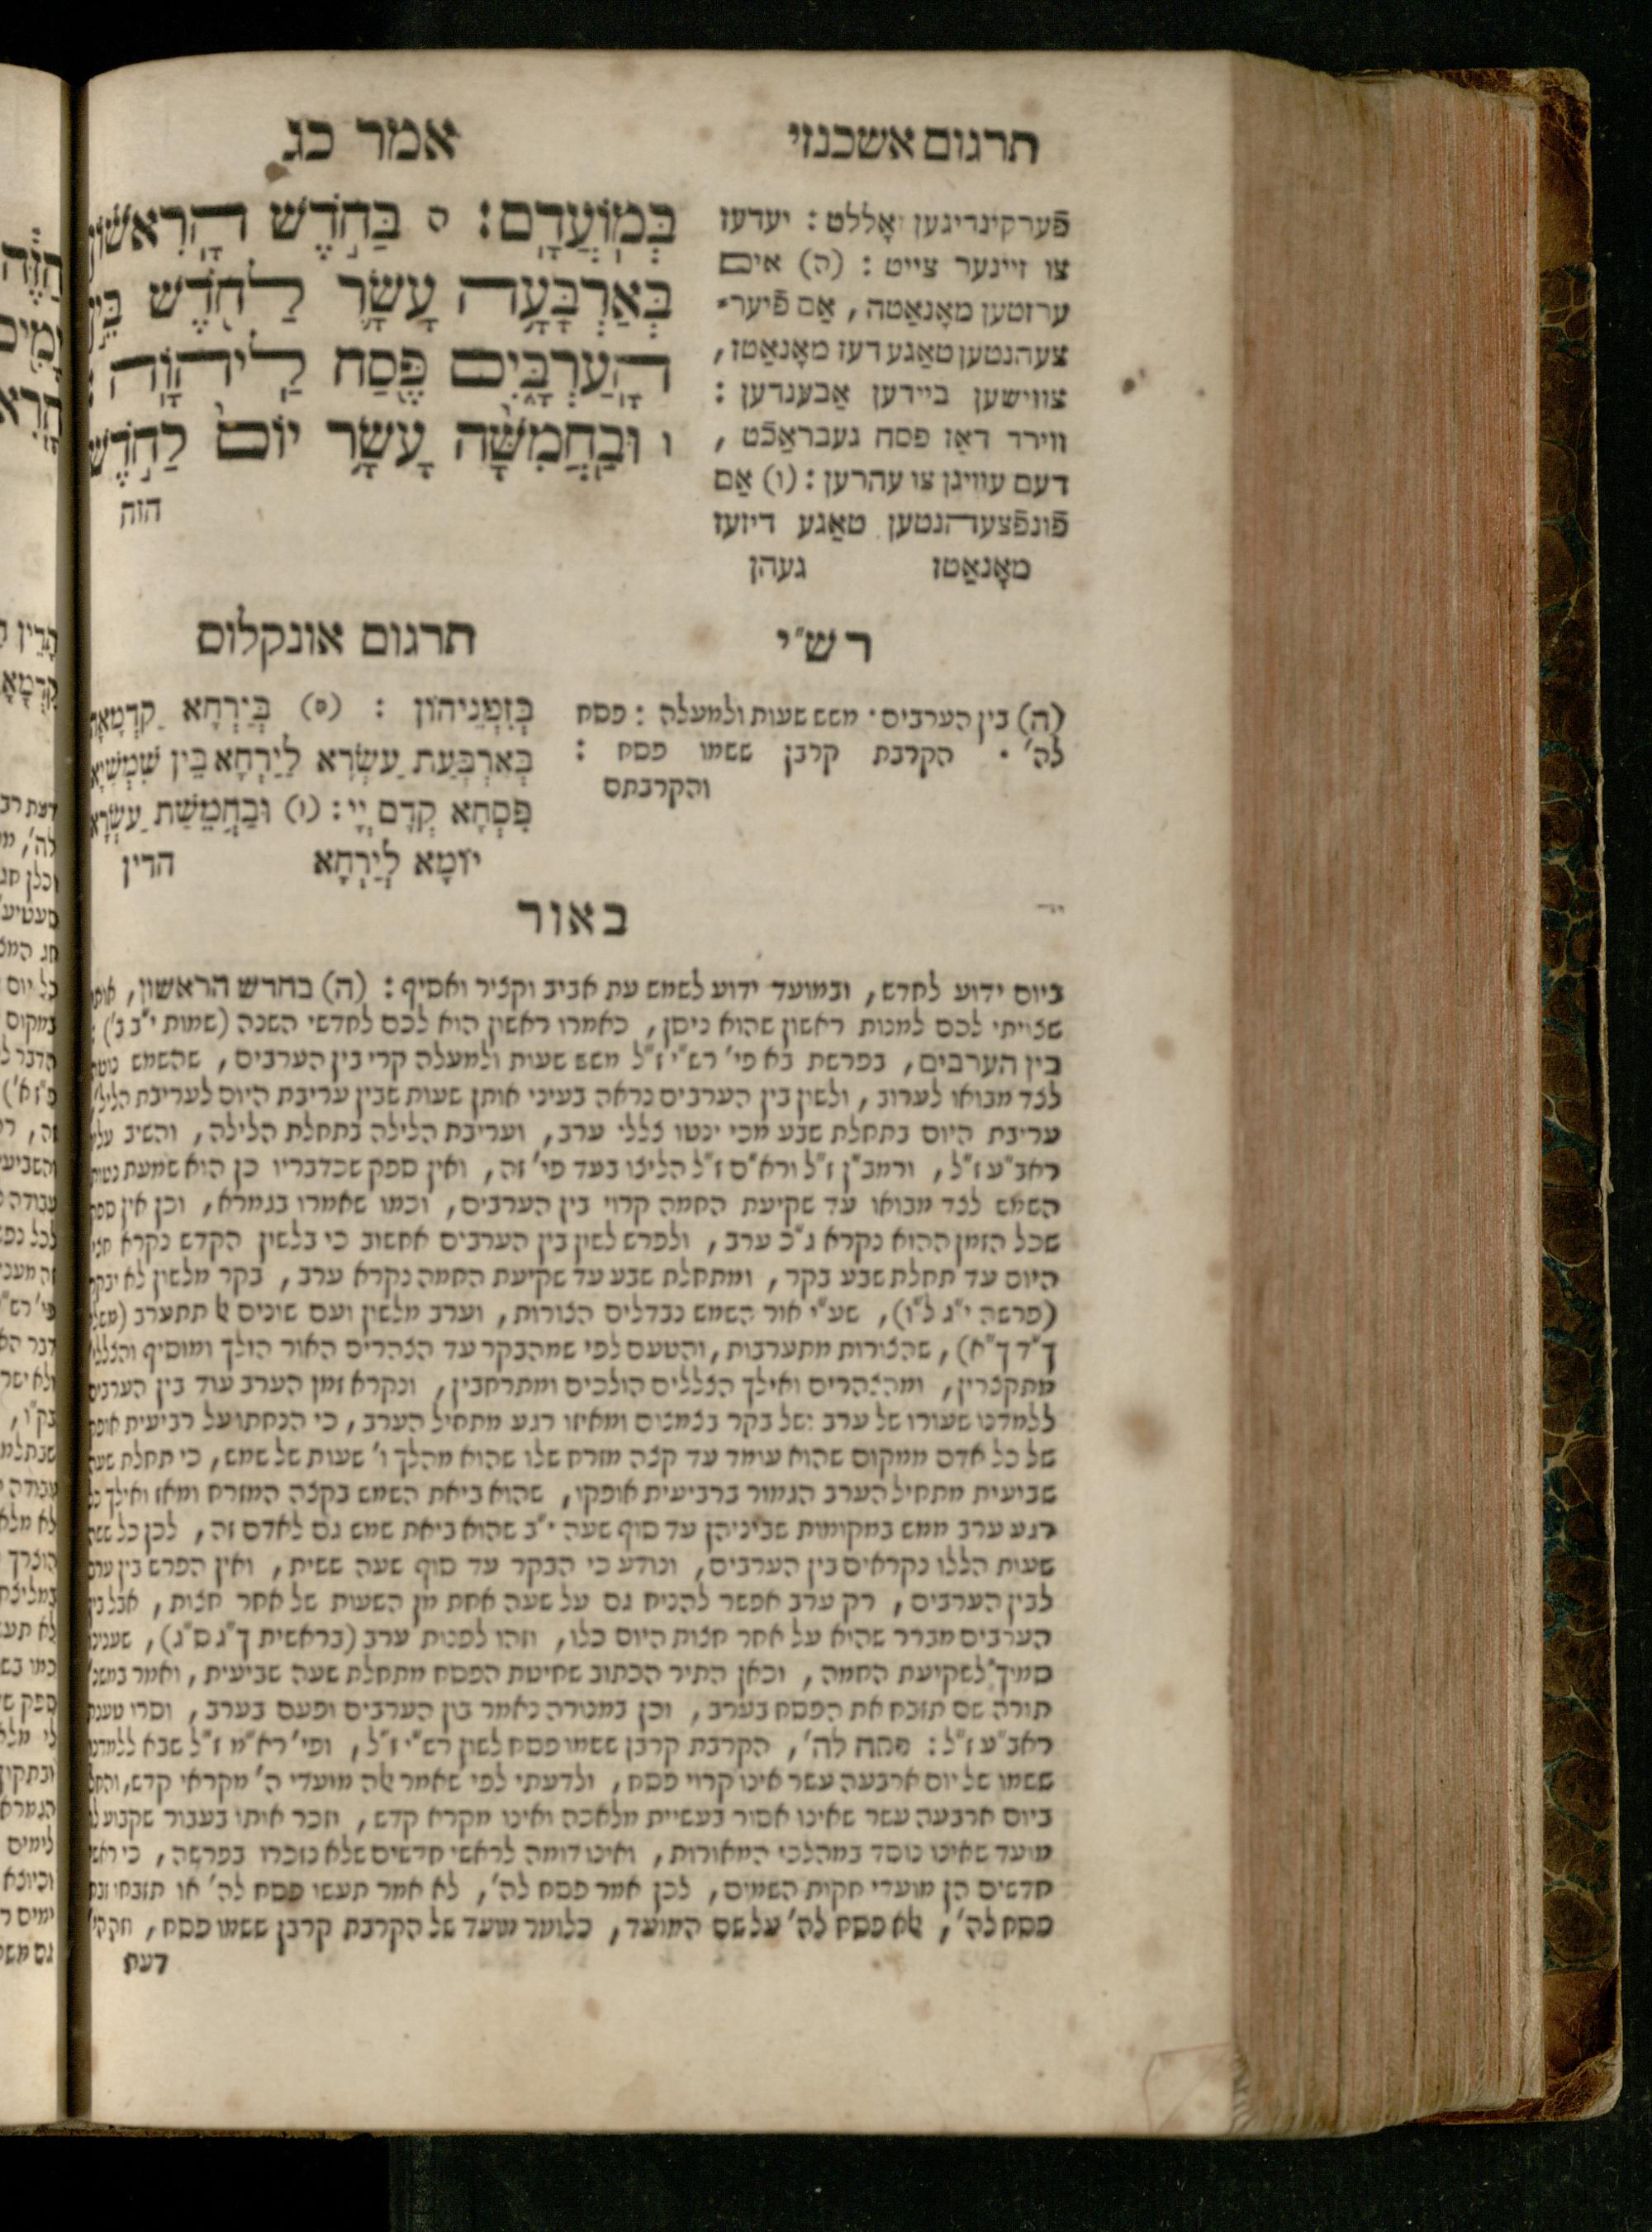 תרגום אשכנזי
אמר כג
פֿערקינדיגען זאָללט : יעדעז
צו זיינער צייט : (ה) אים
ערזטען מאָנאַטה, אַם פֿיער־
צעהנטען טאַגע דעז מאָנאַטז,
צווישען ביידען אַבענדען :
ווירד דאַז פסח געבראַכֿט ,
דעם עוויגן צו עהרען : (ו) אַם
פֿונפֿצעהנטען טאַגע דיזעז
מאָנאַטז געהן
בְּמוֹעֲדָם׃ ה בַּחֹדֶשׁ הָרִאשׁוֹן
בְּאַרְבָּעָה עָשָׂר לַחֹדֶשׁ בֵּין
הָעַרְבָּיִם פֶּסַח לַיהוָֹה׃
ו וּבַחֲמִשָּׁה עָשָׂר יוֹם לַחֹדֶשׁ
הזה
רש״י
(ה) בין הערבים · משש שעות ולמעלה : פסח
לה׳ · הקרבת קרבן ששמו פסח :
והקרבתם
תרגום אונקלוס
בְּזִמְנֵיהוֹן : (ה) בְּיַרְחָא קַדְמָאָה
בְּאַרְבְּעַת עַשְׂרָא לְיַרְחָא בֵּין שִׁמְשַׁיָּא
פִּסְחָא קֳדָם יְיָ : (ו) וּבַחֲמֵשַׁת עַשְׂרָא
יוֹמָא לְיַרְחָא הדין
באור
ביום ידוע לחדש, ובמועד ידוע לשמש עת אביב וקציר ואסיף : (ה) בחדש הראשון, אותו
שצויתי לכם למנות ראשון שהוא ניסן, כאמרו ראשון הוא לכם לחדשי השנה (שמות י״ב ב׳) :
בין הערבים, בפרשת בא פי׳ רש״י ז״ל משש שעות ולמעלה קרי בין הערבים, שהשמש נוטה
לצד מבואו לערוב, ולשון בין הערבים נראה בעיני אותן שעות שבין עריבת היום לעריבת הלילה
עריבת היום בתחלת שבע מכי ינטו צללי ערב, ועריבת הלילה בתחלת הלילה, והשיב עליו
ראב״ע ז״ל, ורמב״ן ז״ל ורא״ם ז״ל הליצו בעד פי׳ זה, ואין ספק שכדבריו כן הוא שמעת נטות
השמש לצד מבואו עד שקיעת החמה קרוי בין הערבים, וכמו שאמרו בגמרא, וכן אין ספק
שכל הזמן ההוא נקרא ג״כ ערב, ולפרש לשון בין הערבים אחשוב כי בלשון הקדש נקרא חצי
היום עד תחלת שבע בקר, ומתחלת שבע עד שקיעת החמה נקרא ערב, בקר מלשון לא יבקר
(פרשה י״ג ל״ו), שע״י אור השמש נבדלים הצורות, וערב מלשון ועם שונים אל תתערב (משלי
ך״ד ך״א), שהצורות מתערבות, והטעם לפי שמהבקר עד הצהרים האור הולך ומוסיף והצללים
מתקצרין, ומהצהרים ואילך הצללים הולכים ומתרחבין, ונקרא זמן הערב עוד בין הערבים
ללמדנו שעורו של ערב ושל בקר בצמצום ומאיזו רגע מתחיל הערב, כי הנחתו על רביעית אופק
של כל אדם ממקום שהוא עומד עד קצה מזרח שלו שהוא מהלך ו׳ שעות של שמש, כי תחלת שעה
שביעית מתחיל הערב הגמור ברביעית אופקו, שהוא ביאת השמש בקצה המזרח ומאז ואילך כל
רגע ערב ממש במקומות שביניהן עד סוף שעה י״ב שהוא ביאת שמש גם לאדם זה, לכן כל ששה
שעות הללו נקראים בין הערבים, ונודע כי הבקר עד סוף שעה ששית, ואין הפרש בין ערב
לבין הערבים, רק ערב אפשר להניח גם על שעה אחת מן השעות של אחר חצות, אבל בין
הערבים מברר שהיא על אחר חצות היום כלו, וזהו לפנות ערב (בראשית ך״ג ס״ג), שענינו
סמיך לשקיעת החמה, וכאן התיר הכתוב שחיטת הפסח מתחלת שעה שביעית, ואמר במשנה
תורה שם תזבח את הפסח בערב, וכן במנורה נאמר בין הערבים ופעם בערב, וסרו טענת
ראב״ע ז״ל : פסח לה׳, הקרבת קרבן ששמו פסח לשון רש״י ז״ל, ופי׳ רא״ם ז״ל שבא ללמדנו
ששמו של יום ארבעה עשר אינו קרוי פסח, ולדעתי לפי שאמר אלה מועדי ה׳ מקראי קדש, והחל
ביום ארבעה עשר שאינו אסור בעשיית מלאכה ואינו מקרא קדש, וזכר אותו בעבור שקבוע לו
מועד שאינו נוסד במהלכי המאורות, ואינו דומה לראשי חדשים שלא נזכרו בפרשה, כי ראשי
חדשים הן מועדי חקות השמים, לכן אמר פסח לה׳, לא אמר תעשו פסח לה׳ או תזבחו זבח
פסח לה׳, אלא פסח לה׳ על שם המועד, כלומר מועד של הקרבת קרבן ששמו פסח, וזהו
דעת